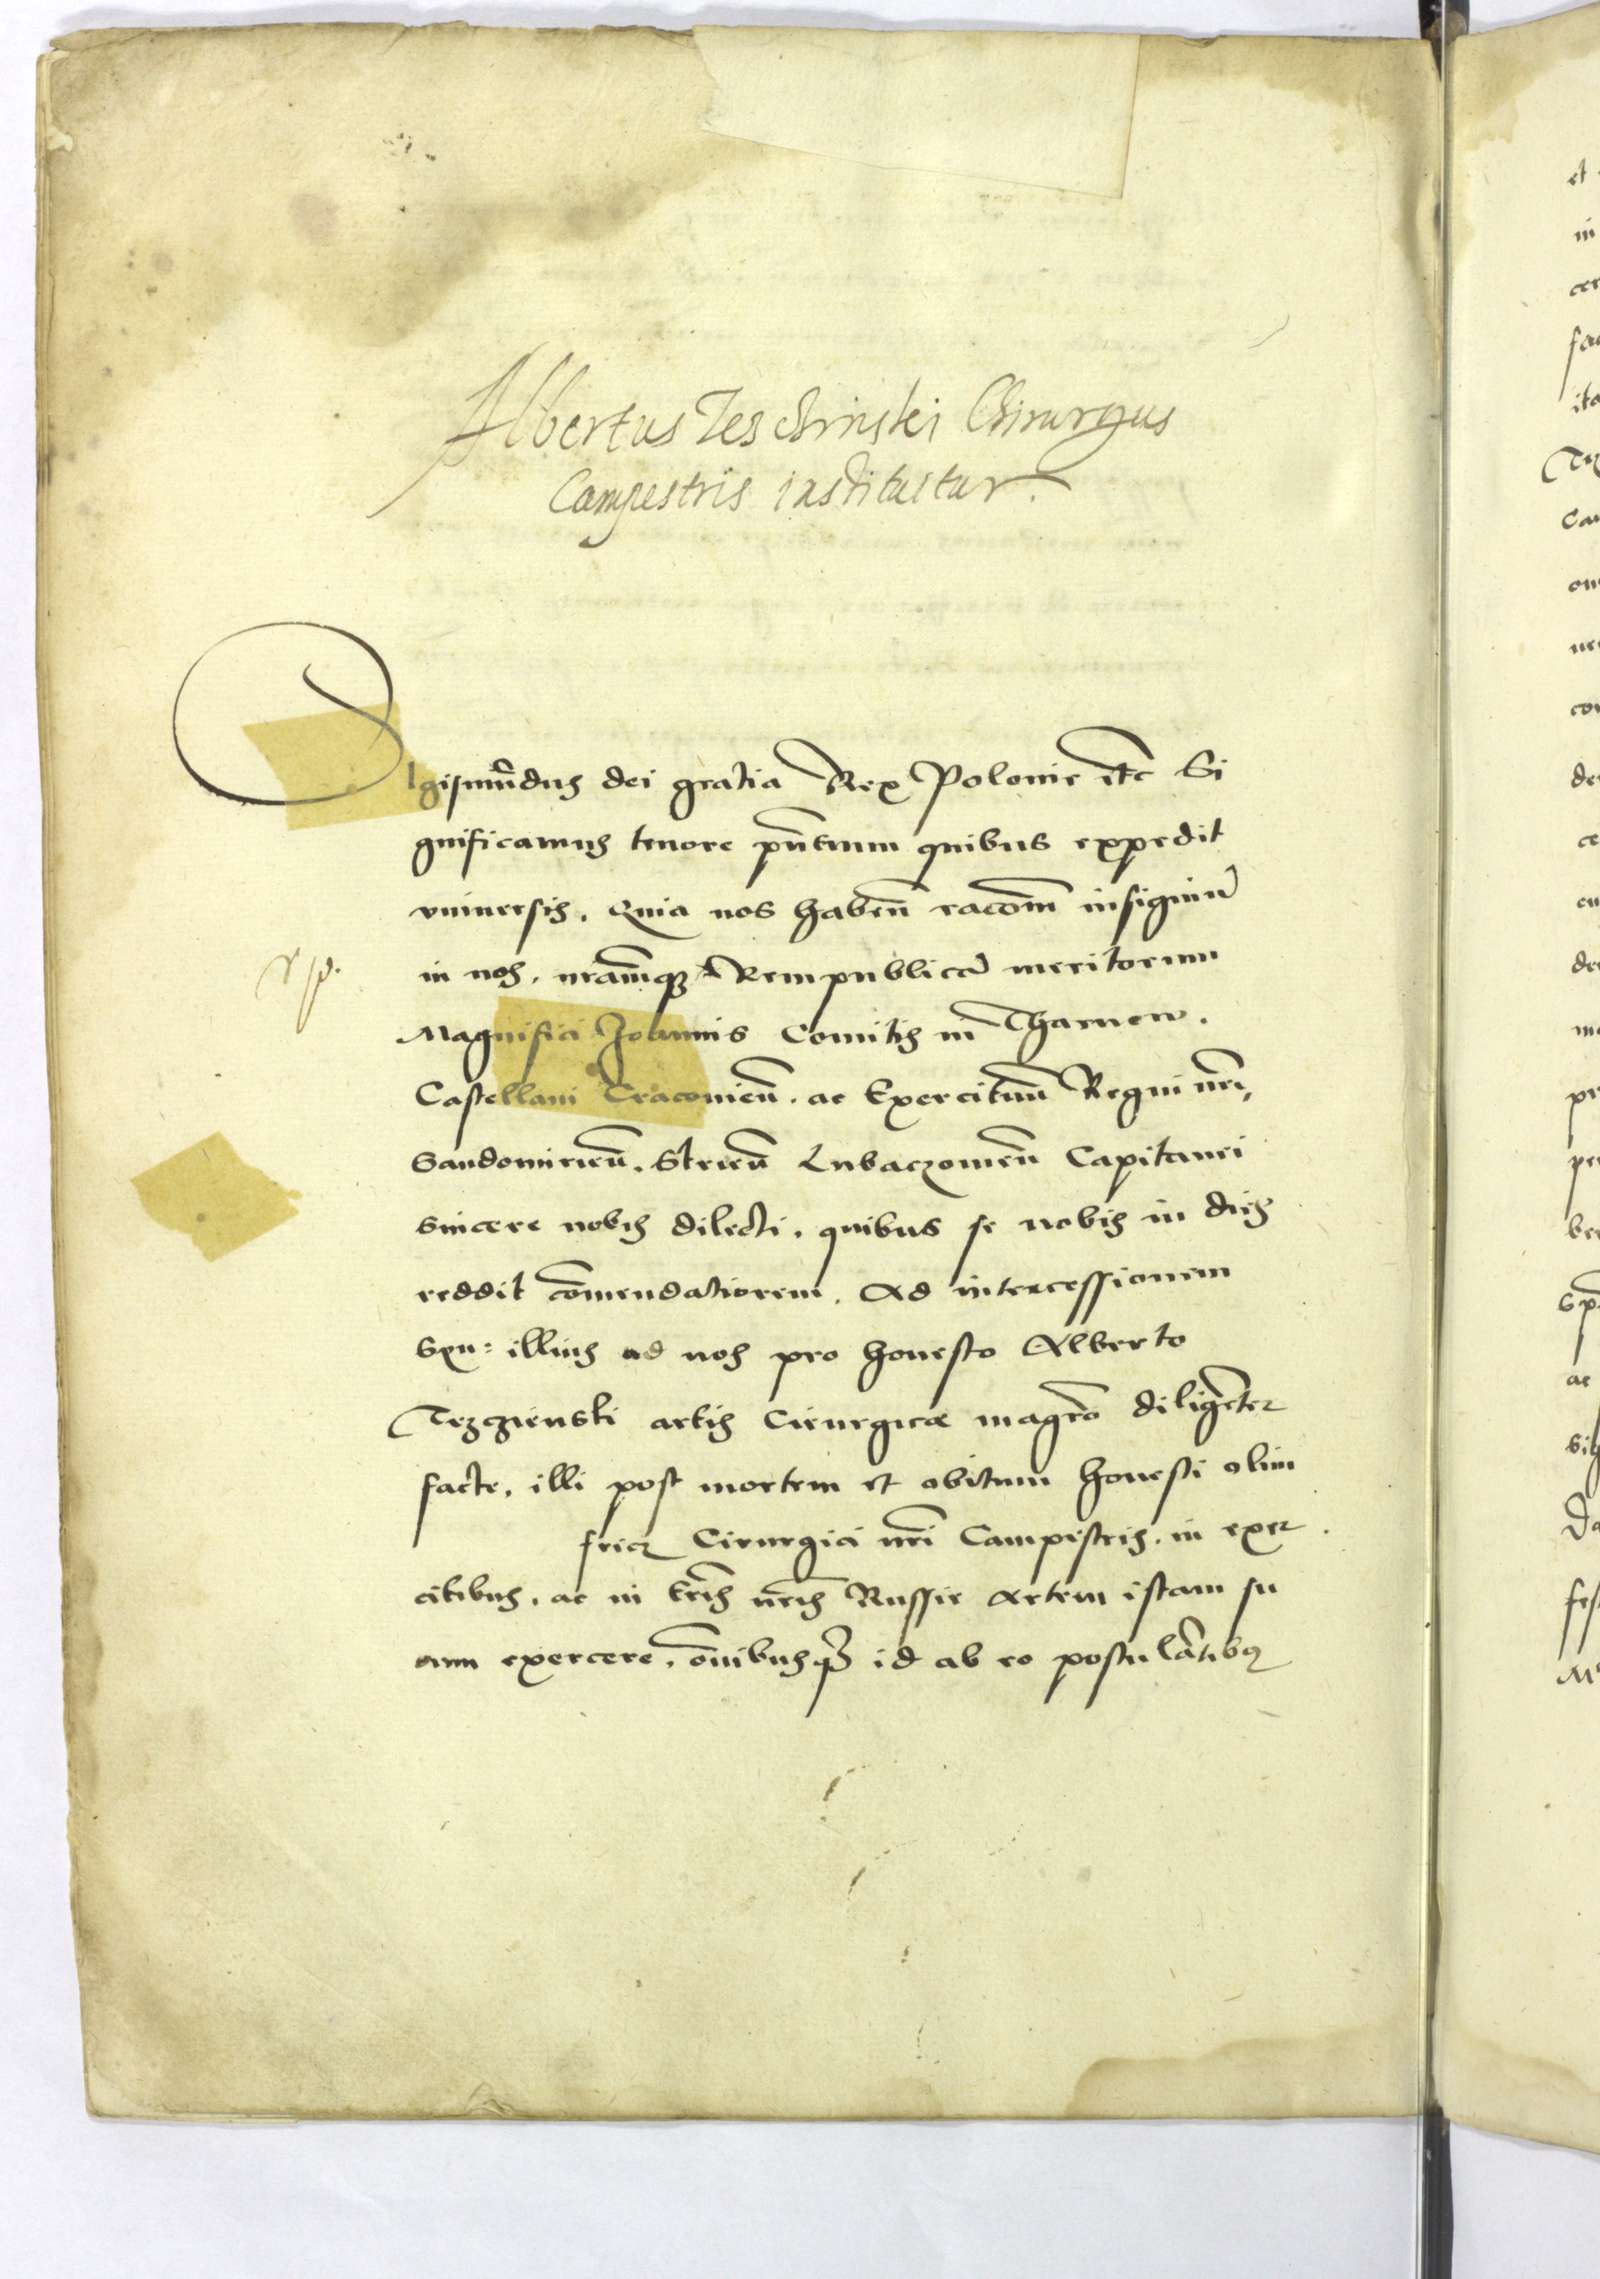 Albertus Teschinski Chirurgus
Campestris instituitur.
Sigismūdus dei gratia Rex Polonie etc Si
gnificamus tenore pñtium quibus expedit
vniuersis. Quia nos habeñ racõem insigniũ
in nos, nramq3 Rempublicã meritorum
Magnifici Joannis Comitis in Tharnow.
Castellani Cracovieñ. ac Exercituũ Regni nri,
Sandomirieñ. Strieñ Lubaczovieñ Capitanei
sincere nobis dilecti. quibus se nobis in dies
reddit cõmendatiorem. Ad intercessionem
illius ad nos pro honesto Alberto
Tezczienski artis Cirurgicæ magrõ diligẽter
facte. illi post mortem et obitum honesti olim
Cirurgici nri Campestris. in exer
citibus. ac in tris nris Russie artem istam su
am exercere. õnibusq3 id ab eo postulãtibus
et
in